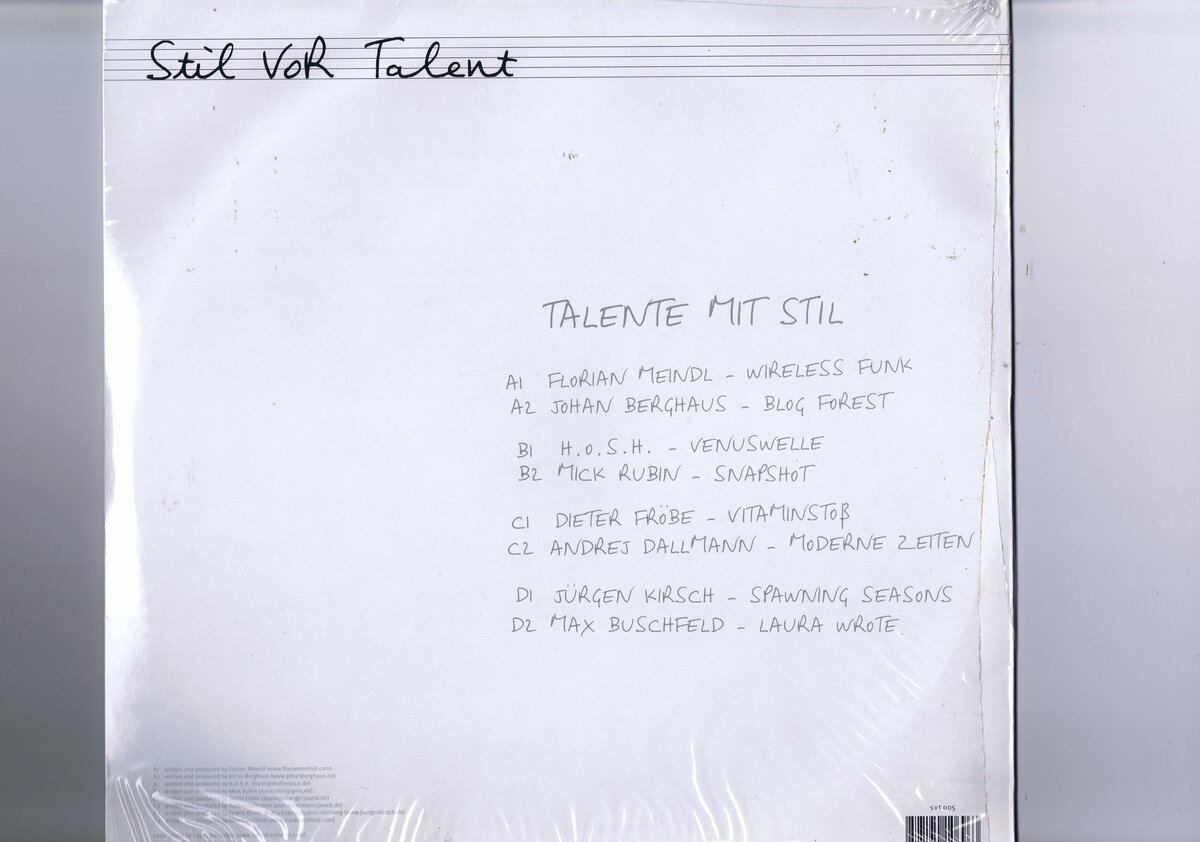 Stil VoR Talent
TALENTE MIT STIL
A1 FLORIAN MEINDL - WIRELESS FUNK
A2 JOHAN BERGHAUS - BLOG FOREST
B1 H.O.S.H. - VENUSWELLE
B2 MICK RUBIN - SNAPSHOT
C1 DIETER FRÖBE - VITAMINSTOß
C2 ANDREJ DALLMANN - MODERNE ZEITEN
D1 JÜRGEN KIRSCH - SPAWNING SEASONS
D2 MAX BUSCHFELD - LAURA WROTE
A1 written and produced by Florian Meindl (www.florianmeindl.com)
A2 written and produced by Johan Berghaus (www.johanberghaus.de)
B1 written and produced by H.O.S.H.
written and produced by Mick Rubin
written and produced by
written and
written and
written and
svt 005